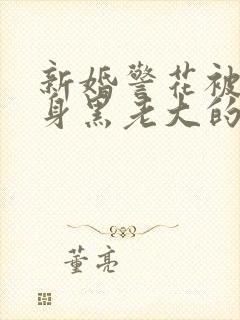 新婚警花被
身黑老大的
董亮